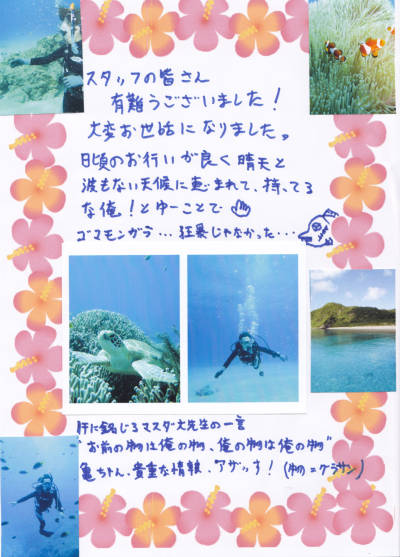 スタッフの皆さん
有難うございました！
大変お世話になりました。
日頃のお行いが良く晴天と
波もない天候に恵まれて、持ってる
な俺！とゆーことで
ゴマモンガラ…狂暴じゃなかった…
肝に銘じるマスダ大先生の一言
"お前の物は俺の物、俺の物は俺の物"
亀ちゃん、貴重な情報、アザッす！(物=グラサン)